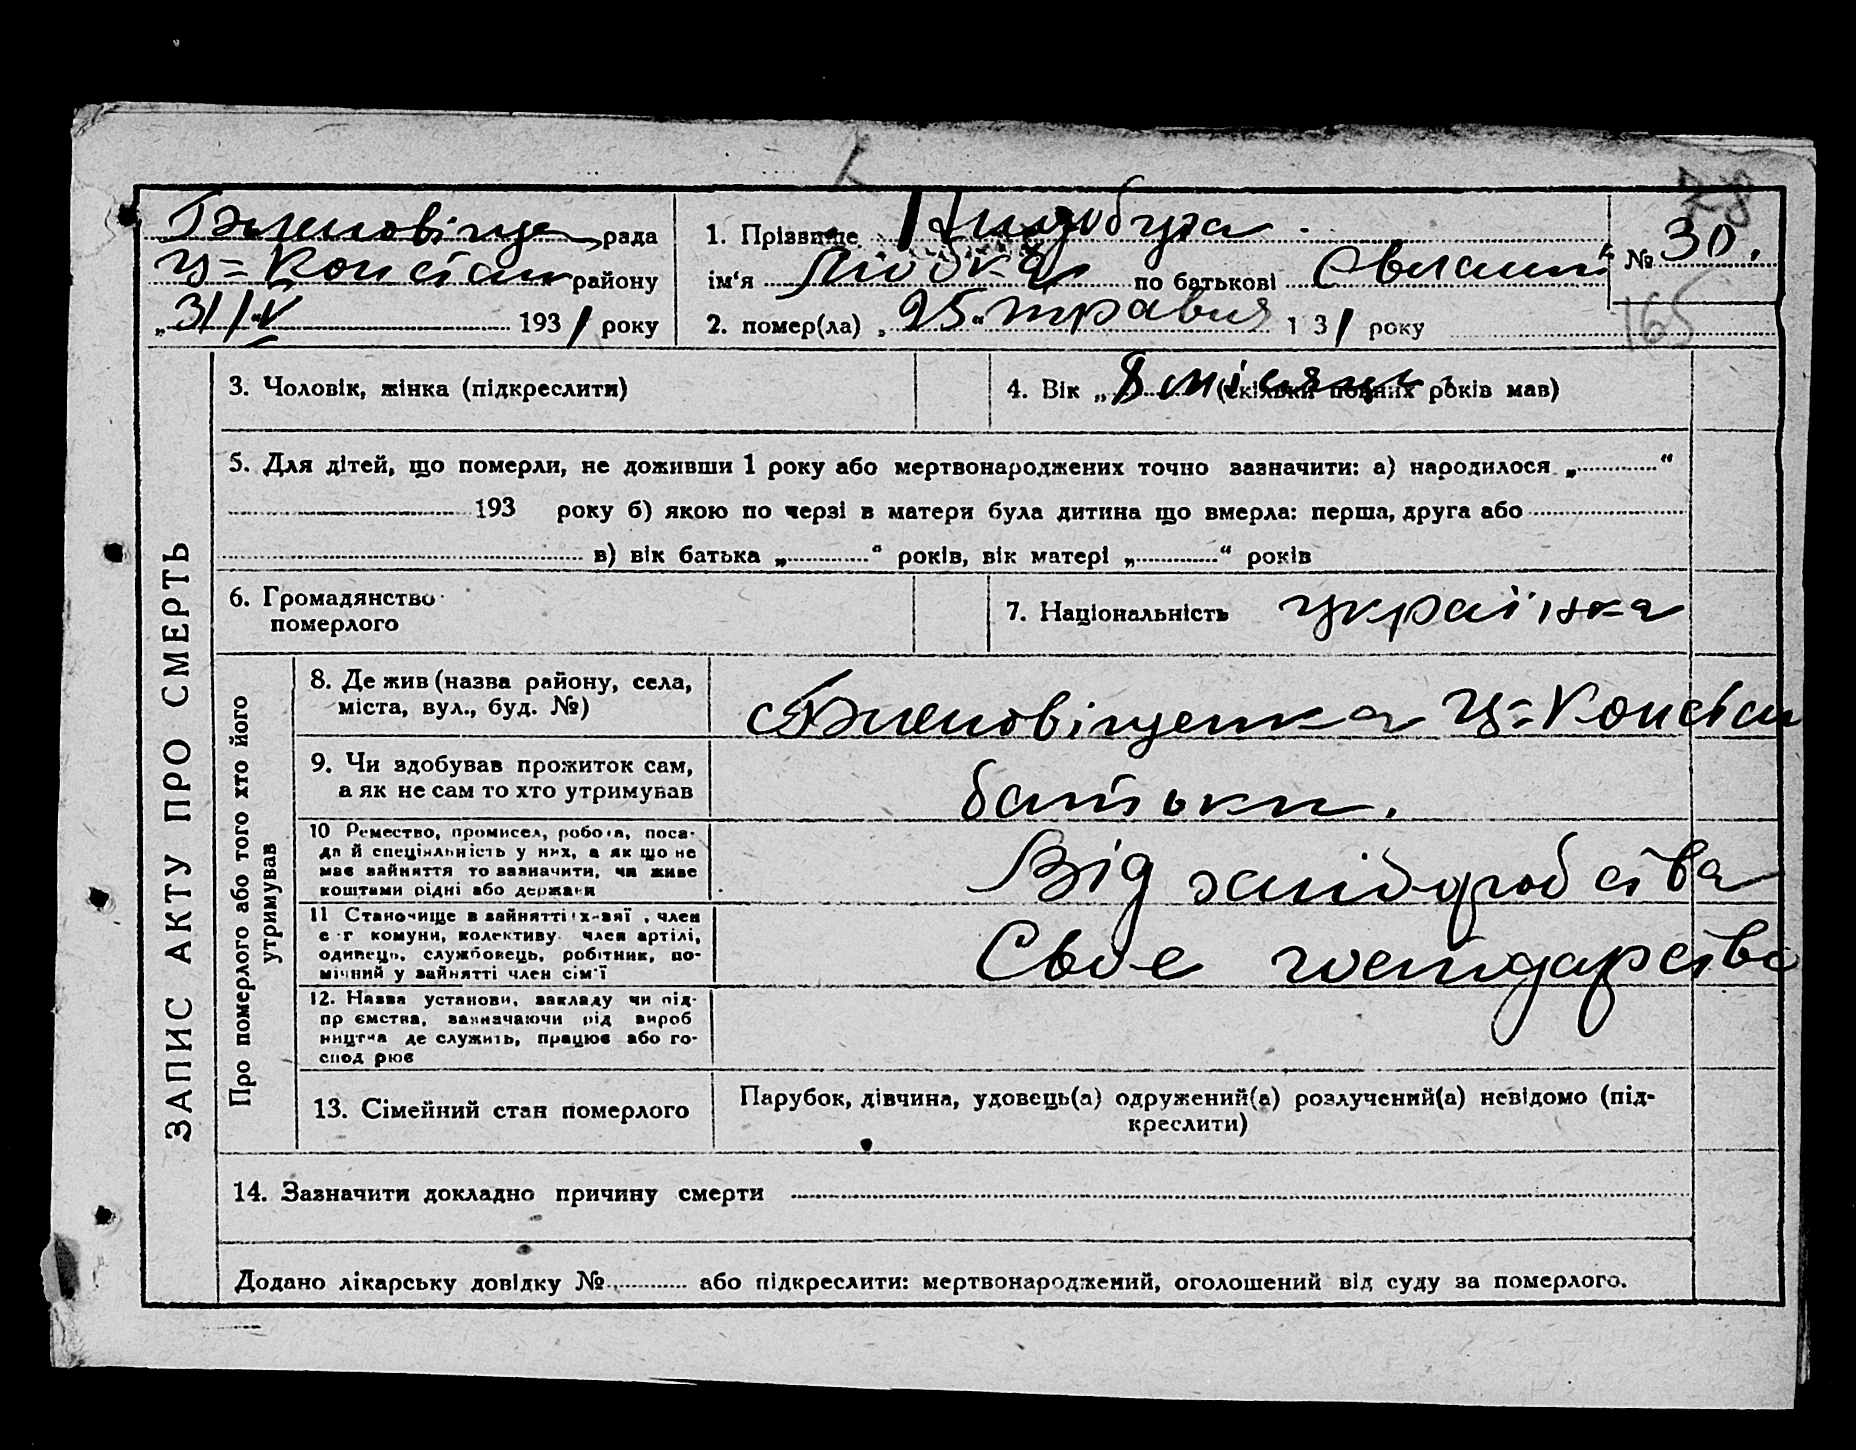 рада
1. Прізвище
№ 30.
району
ім‘я по батькові
„31/V 1931 року
2. помер(ла) „25“ травня 1 31 року
165
3. Чоловік, жінка (підкреслити)
4. Вік „8 місяць (скільки повних років мав)
5. Для дітей, що померли, не доживши 1 року або мертвонароджених точно зазначити: а) народилося „ “
193 року б) якою по черзі в матери була дитина що вмерла: перша, друга або
в) вік батька „ “ років, вік матері „ “ років
6. Громадянство
померлого
7. Національність українка
ЗАПИС АКТУ ПРО СМЕРТЬ
Про померлого або того хто його
утримував
8. Де жив (назва району, села,
міста, вул., буд. №)
9. Чи здобував прожиток сам,
а як не сам то хто утримував
батьки.
10 Ремество, промисел, робота, поса-
да й спеціяльність у них, а як що не
має зайняття то зазначити, чи живе
коштами рідні або держави
Від
11 Становище в зайнятті , член
комуни, колективу член артілі,
одинець, службовець, робітник, по-
мічний у зайнятті член сім'ї
Своє господарство
12. Назва установи, закладу чи під-
пр ємства, зазначаючи рід вироб
ництва де служить, працює або го-
спод рює
13. Сімейний стан померлого
Парубок, дівчина, удовець(а) одружений(а) розлучений(а) невідомо (під-
креслити)
14. Зазначити докладно причину смерти
Додано лікарську довідку № або підкреслити: мертвонароджений, оголошений від суду за померлого.